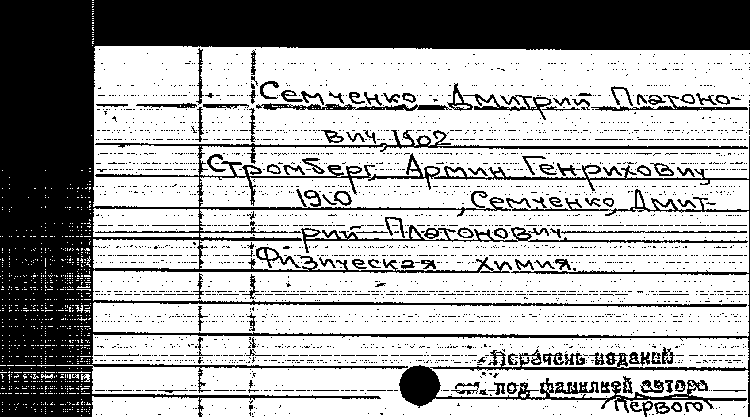 Семченко, Дмитрий Платоно-
вич, 1902
Стромберг, Армин Генрихович,
1910 , Семченко, Дмит-
рий Платонович.
Физическая химия.
Перечень изданий
см. под фамилией автора
первого